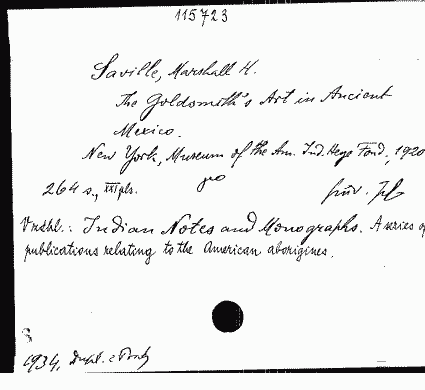 115723
Saville, Marshall H.
The Goldsmith's Art in Ancient
Mexico.
New York, Museum of the Am. Ind. Heye Fond., 1920
264 s., XXI pls.
Indian Notes and Monographs. A series of
publications relating to the American aborigines.
1934, Dupl.